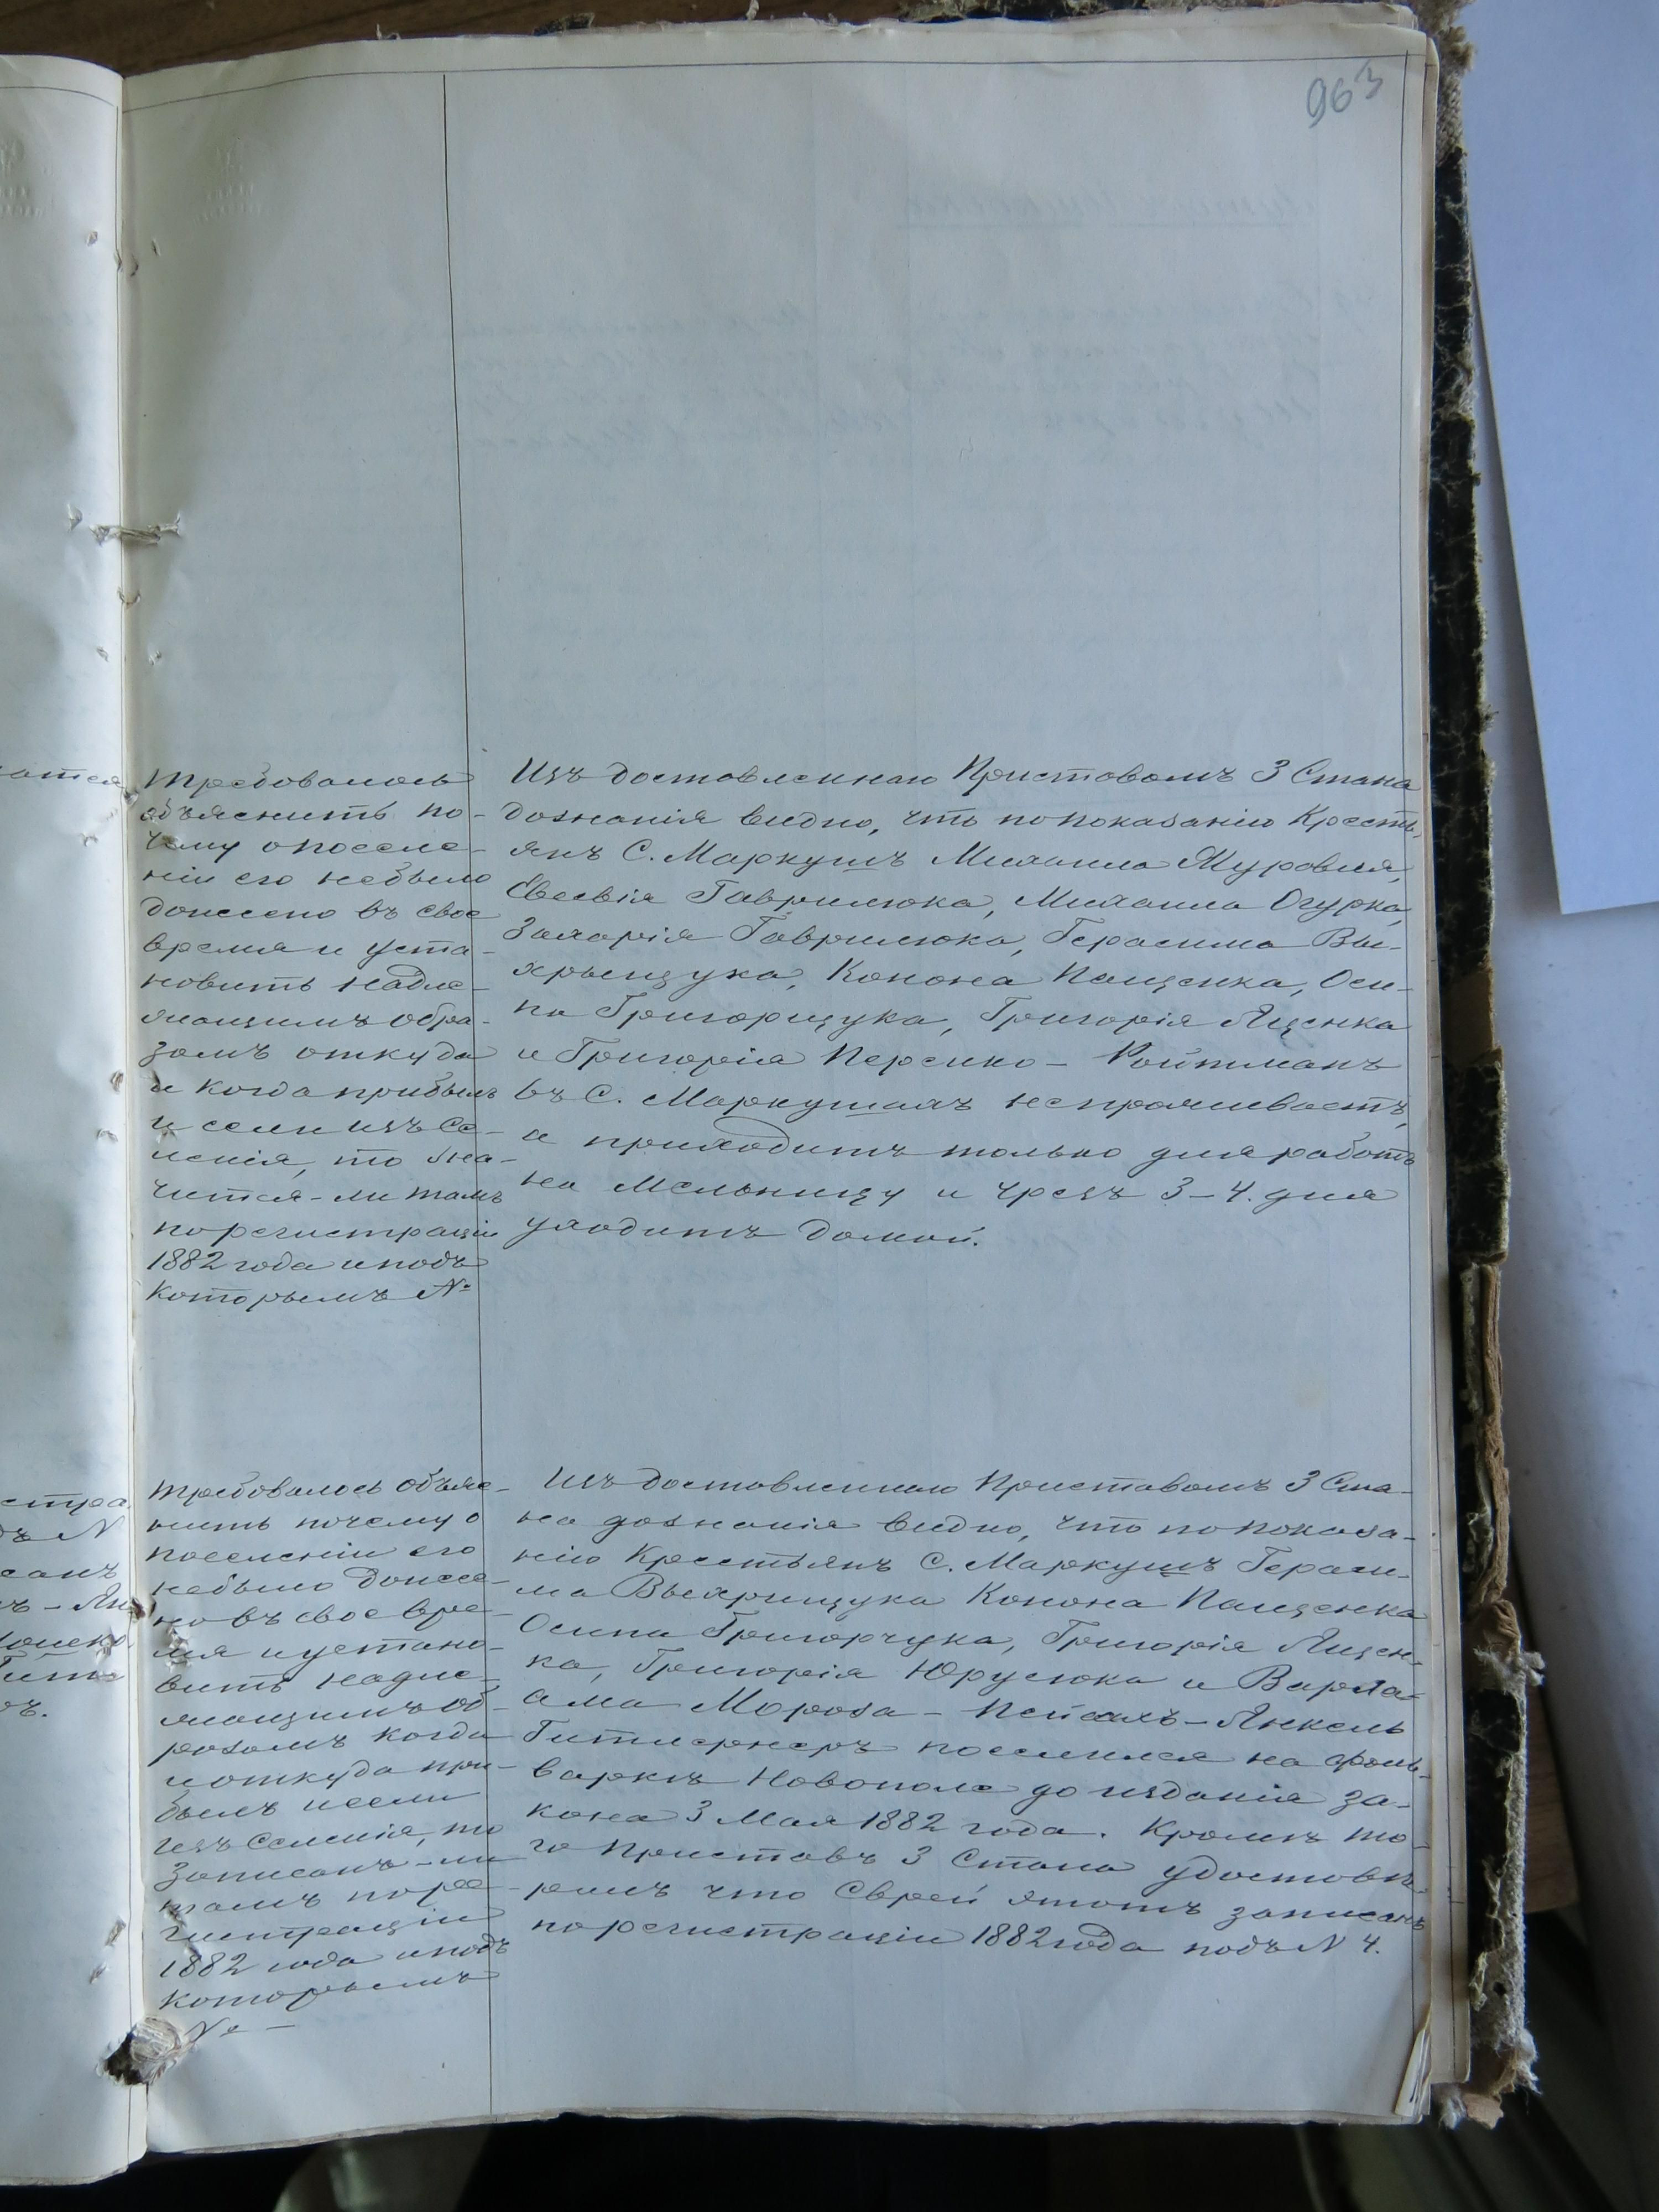 963
Требовалось
объяснить по-
чему о поселе-
ніи его небыло
донесено въ свое
время и уста-
новить надле-
жащимъ обра-
зомъ откуда
и когда прибылъ
и если изъ се-
ленія, то зна-
чится-ли тамъ
по регистраціи
1882 года и подъ
которымъ №
Изъ доставленнаго Приставомъ 3 Стана
дознанія видно, что по показанію Кресть-
янъ С. Маркушъ Михаила Журовля,
Евсевія Гаврилюка, Михаила Огурка,
Захарія Гаврилюка, Герасима Вы-
хрыщука, Конона Пащенка, Оси-
па Григорщука, Григорія Ященка
и Григорія Персико - Ройтманъ
въ С. Маркушахъ непроживаетъ,
а приходитъ только для работъ
на мельницу и чрезъ 3-4. дня
уходитъ домой.
Требовалось объяс-
нить почему о
поселеніи его
небыло донесе-
но въ свое вре-
мя и устано-
вить надле-
жащимъ об-
разомъ когда
и откуда при-
былъ и если
изъ Селенія, то
записанъ-ли
тамъ по ре-
гистраціи
1882 года и подъ
которымъ
№ -
Изъ доставленнаго Приставомъ 3 Ста-
на дознанія видно, что по показа-
нію Крестьянъ С. Маркушъ Гераси-
ма Выхрищука Конона Пащенка
Осипа Григорчука, Григорія Ящен-
ка, Григорія Юрусюка и Варла-
ама Мороза - Пейсахъ-Янкель
Гитлернеръ поселился на фоль-
варкѣ Новополе до изданія за-
кона 3 Мая 1882 года. Кромѣ то-
го Приставъ 3 Стана удостовѣ-
рилъ что Еврей этотъ записанъ
по регистраціи 1882 года подъ N 4.